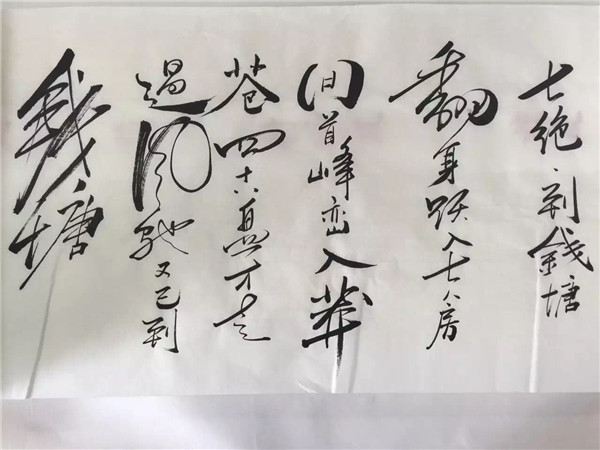 七绝·到錢塘
翻身跃入七人房
回首峰峦入莽
苍四十八盘才走
过风驰又已到
钱塘